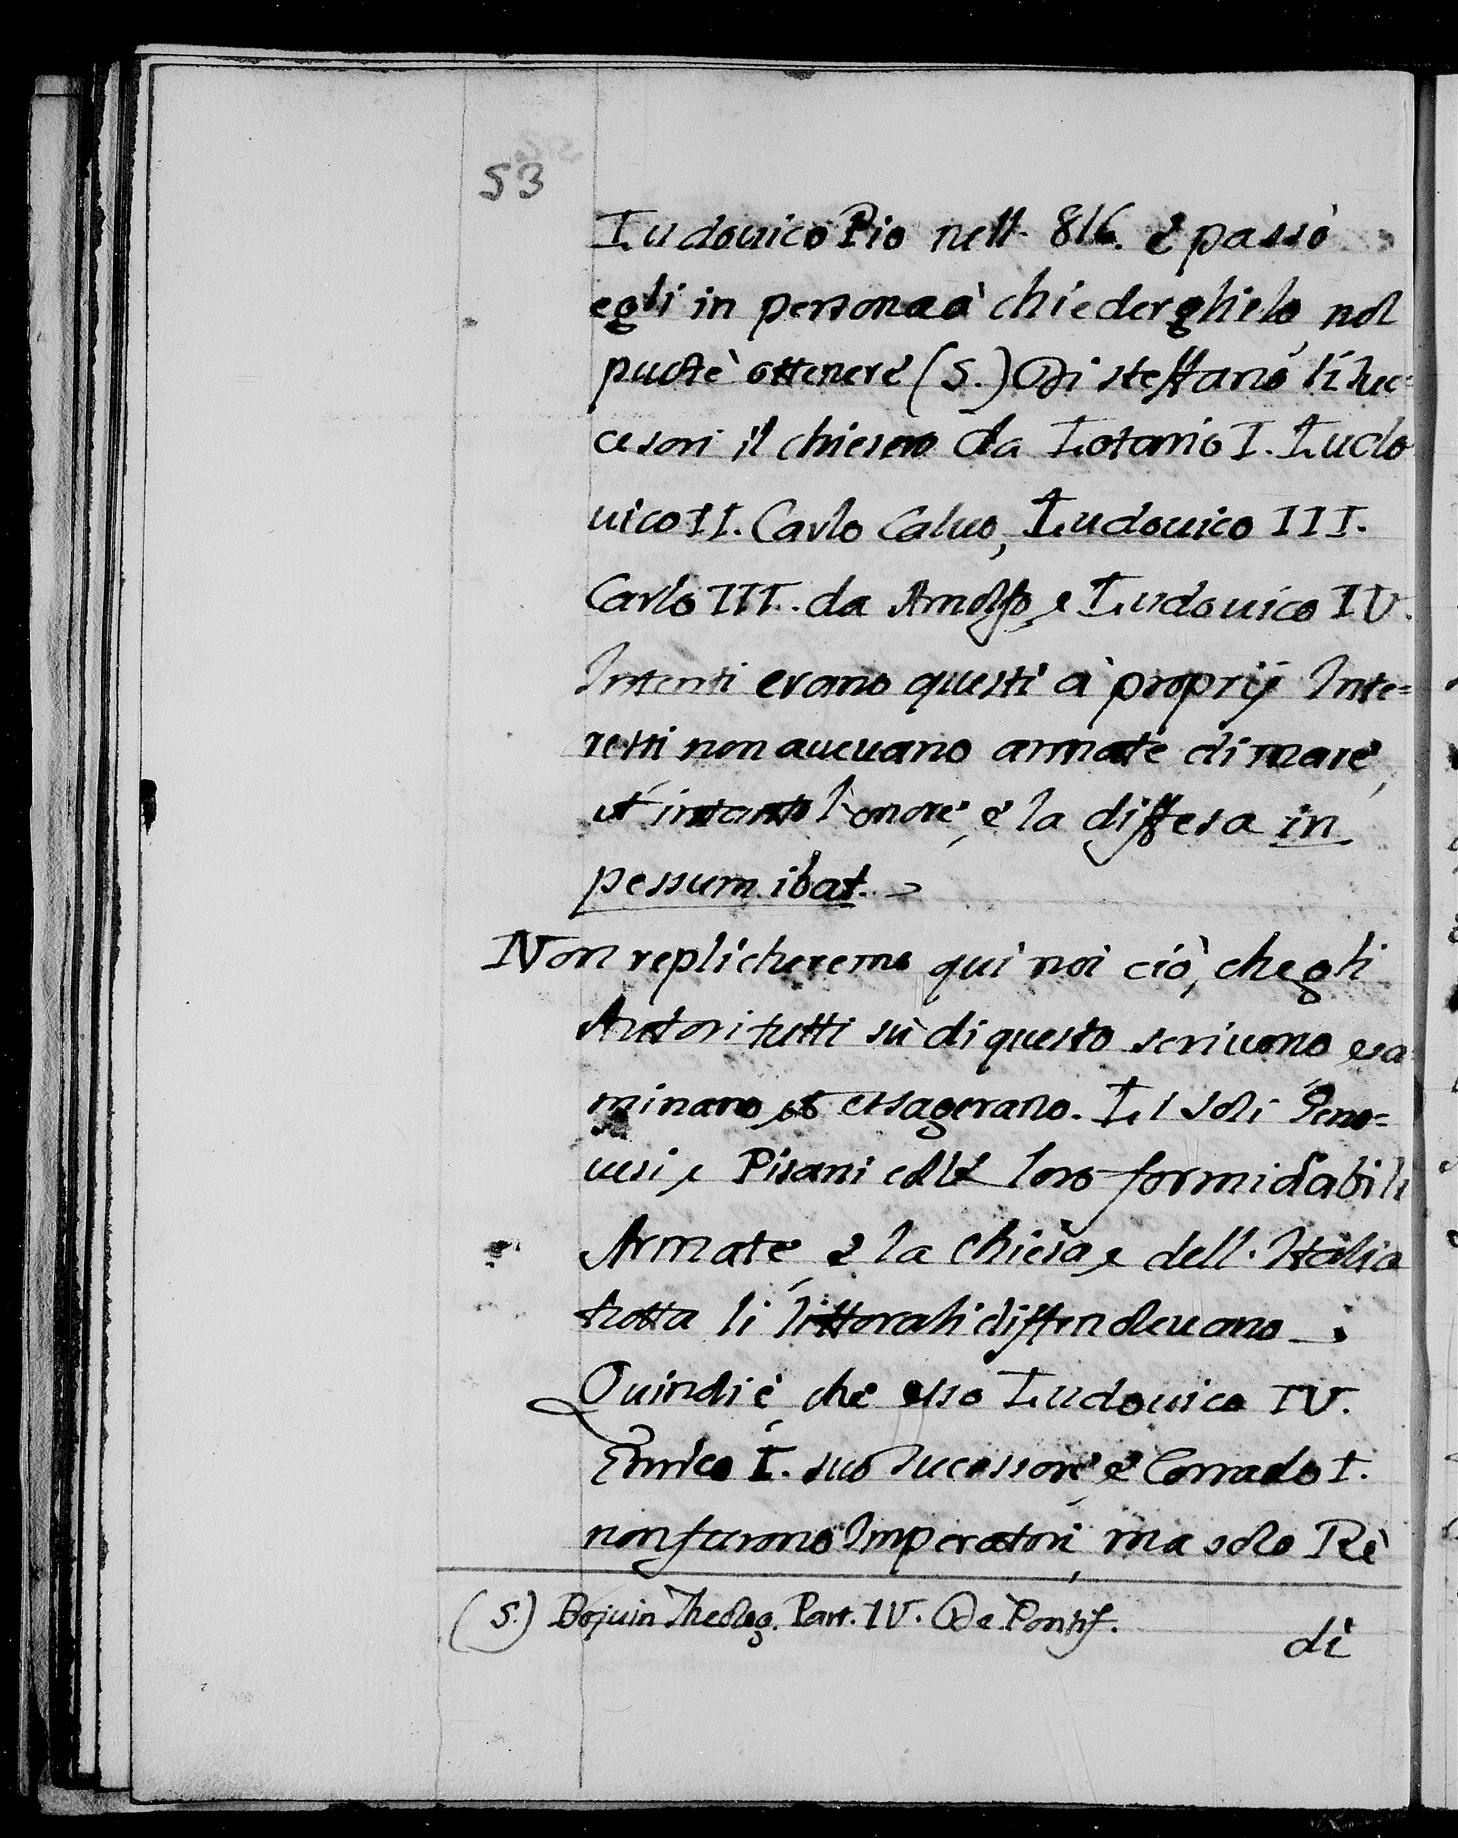 53
Ludouico Pio nell. 816. è passò
egli in persona à chiederghielo, nol
puotè ottenere (S.) Di Steffano li suc=
cesori il chiesero da Lotario I. Ludo
uico II. Carlo Caluo, Ludouico III.
Carlo III. da Arnolfo, e Ludouico IV.
Intenti erano questi à proprij Inte=
ressi non aueuano armate di mare,
et intanto l'onore, è la diffesa in
pessum ibat.
Non replicheremo qui noi ciò, che gli
Autori tutti sù di questo scriuono esa
minano, et essagerano. Li soli Geno=
uesi, e Pisani colle loro formidabili
Armate, è la chiesa, e dell. Italia
tutta li littorali diffendeuano
Quindi è, che esso Ludouico IV.
Enrico I. suo Sucessore, è Corrado I.
non furono Imperatori, ma solo Rè
(S.) Bojuin Theolog. Part. IV. De Pontif.
di